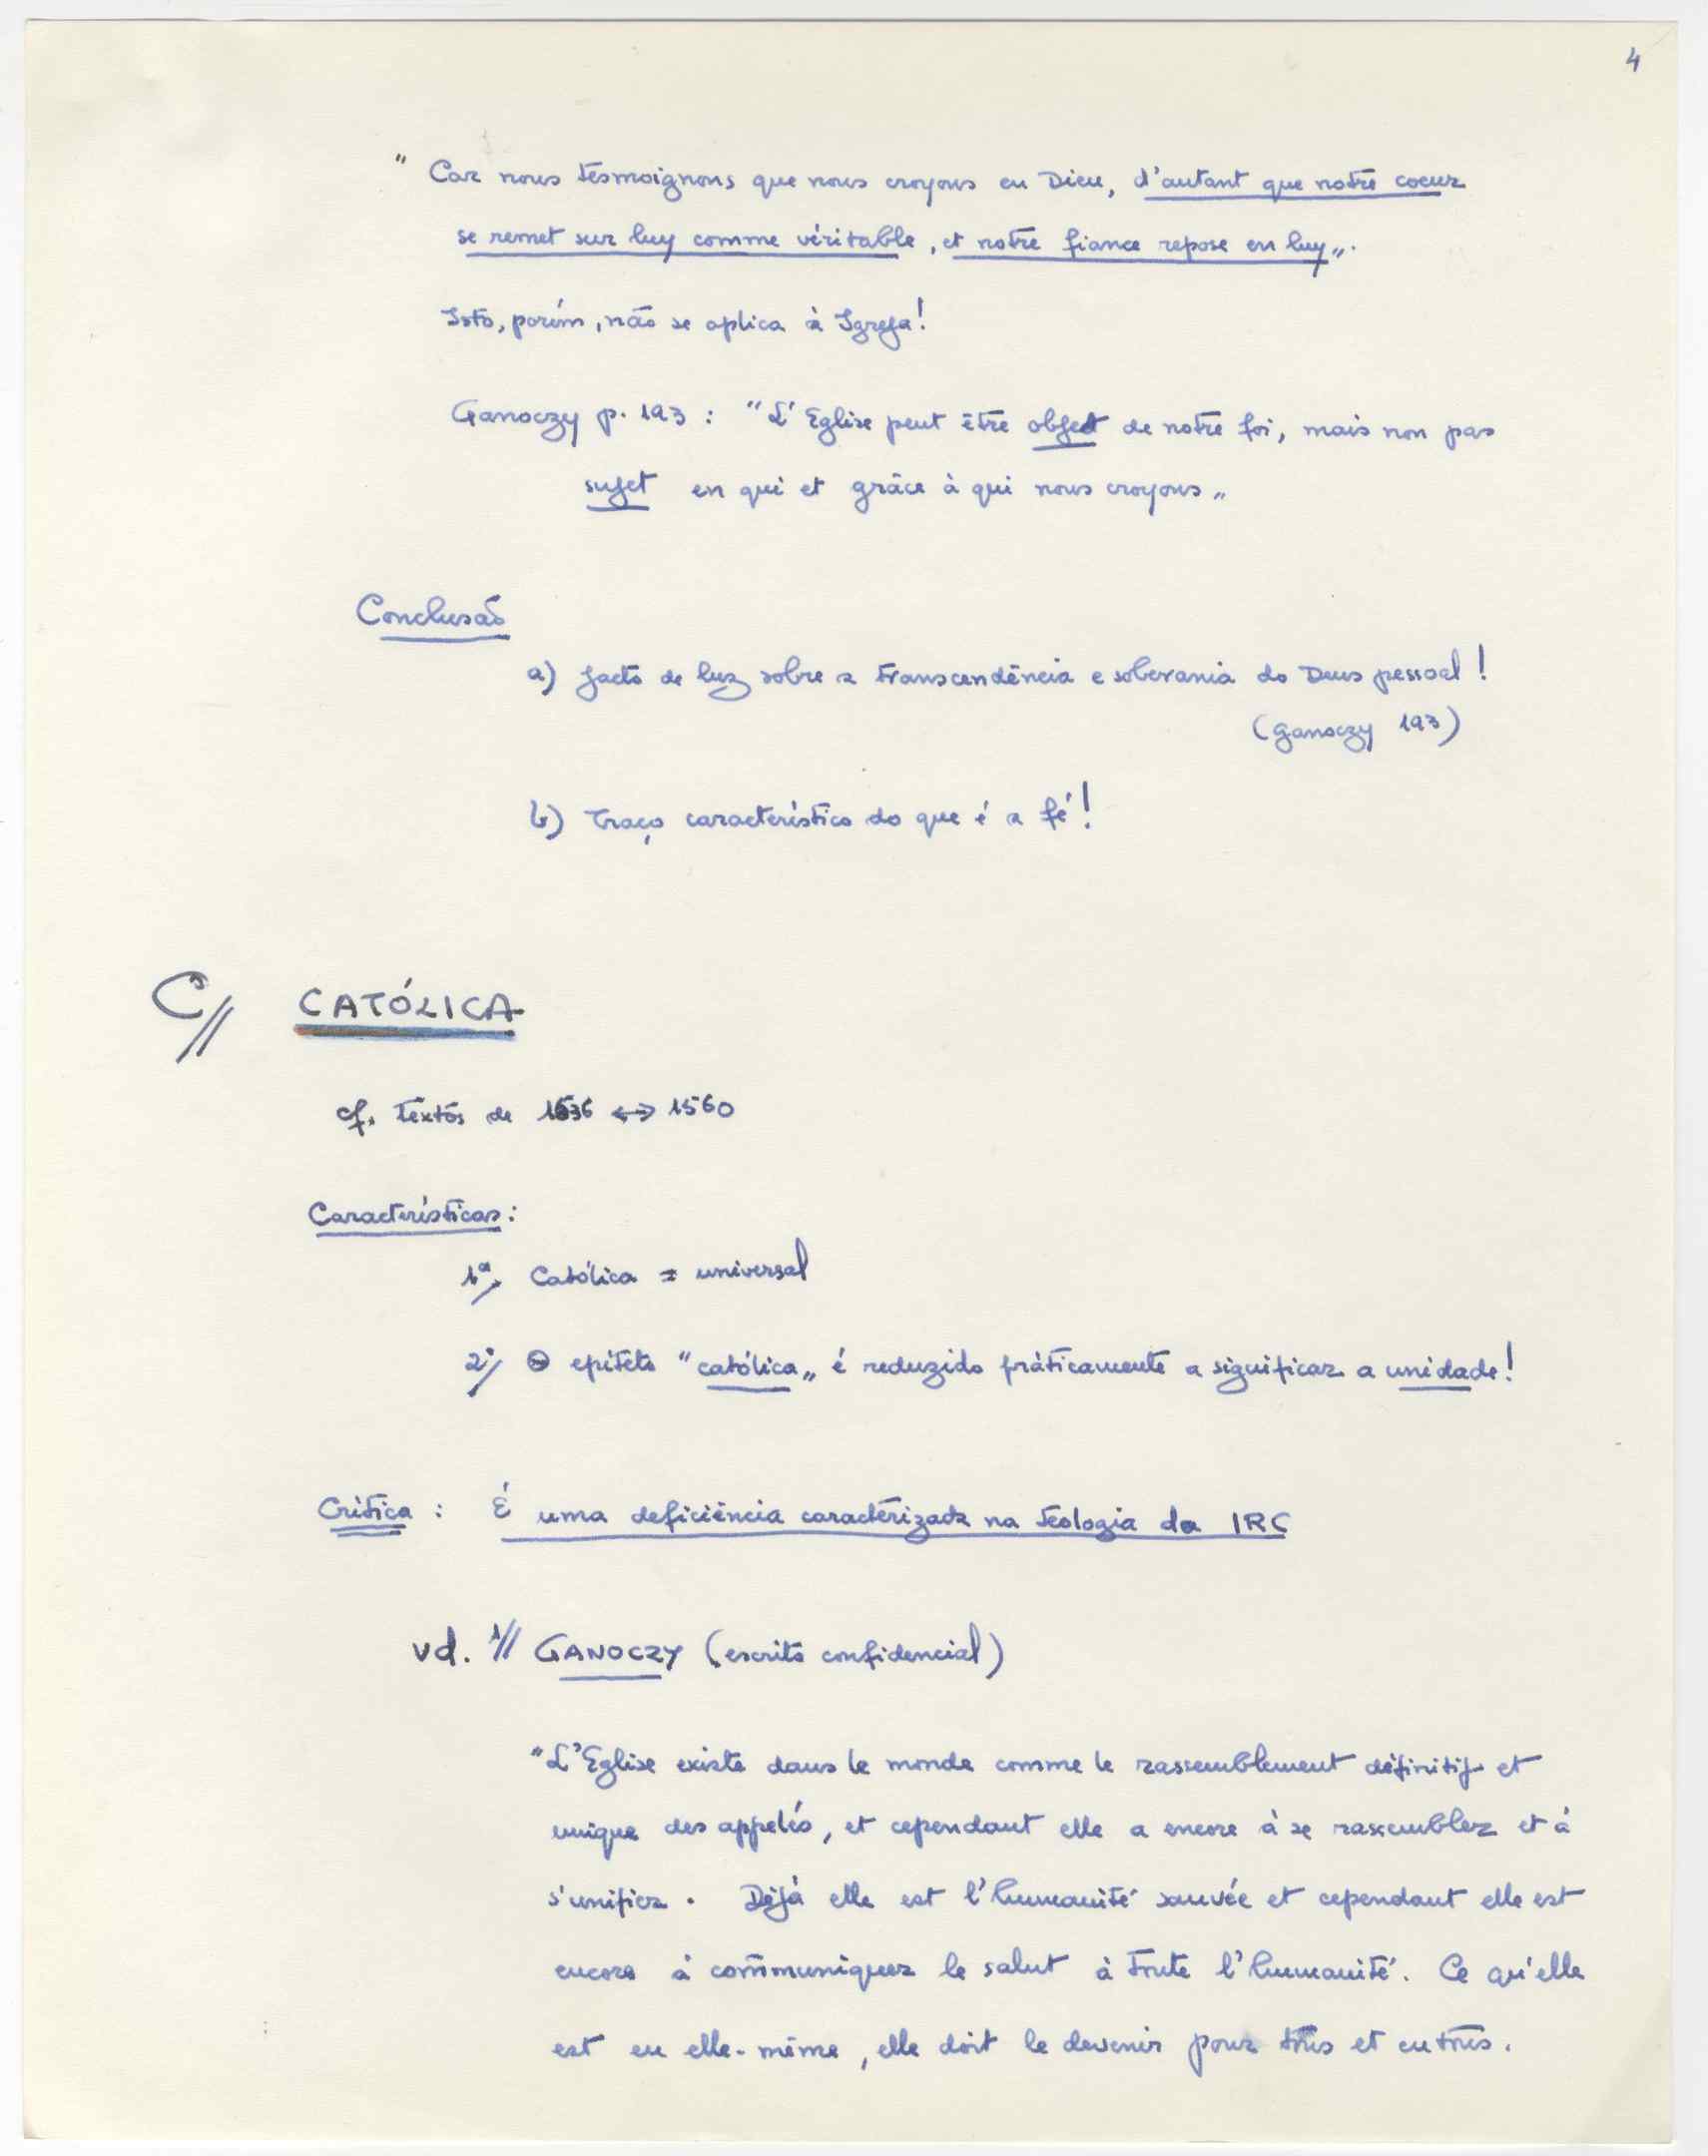 4
" Car nous tesmoignons que nous croyons en Dieu, d'autant que notre coeur
se remet sur luy comme véritable, et notre fiance repose en luy„.
Isto, porém, não se aplica à Igreja!
Ganoczy p. 193 : "L'Eglise peut être objet de notre foi, mais non pas
sujet en qui et grâce à qui nous croyons„
Conclusão
a) Jacto de luz sobre a transcendência e soberania do Deus pessoal!
(Ganoczy 193)
b) Traço característico do que é a fé!
C// CATÓLICA
cf. textos de 1536 ↔ 1560
Características:
1ª, Católica = universal
2ª, O epíteto "católica„ é reduzido práticamente a significar a unidade!
Crítica : É uma deficiência caracterizada na teologia da IRC
vd. 1// GANOCZY (escrito confidencial)
"L'Eglise existe dans le monde comme le rassemblement définitif et
unique des appelés, et cependant elle a encore à se rassembler et à
s'unifier. Déjà elle est l'humanité sauvée et cependant elle est
encore à communiquer le salut à toute l'humanité. Ce qu'elle
est en elle-même, elle doit le devenir pour tous et en tous.